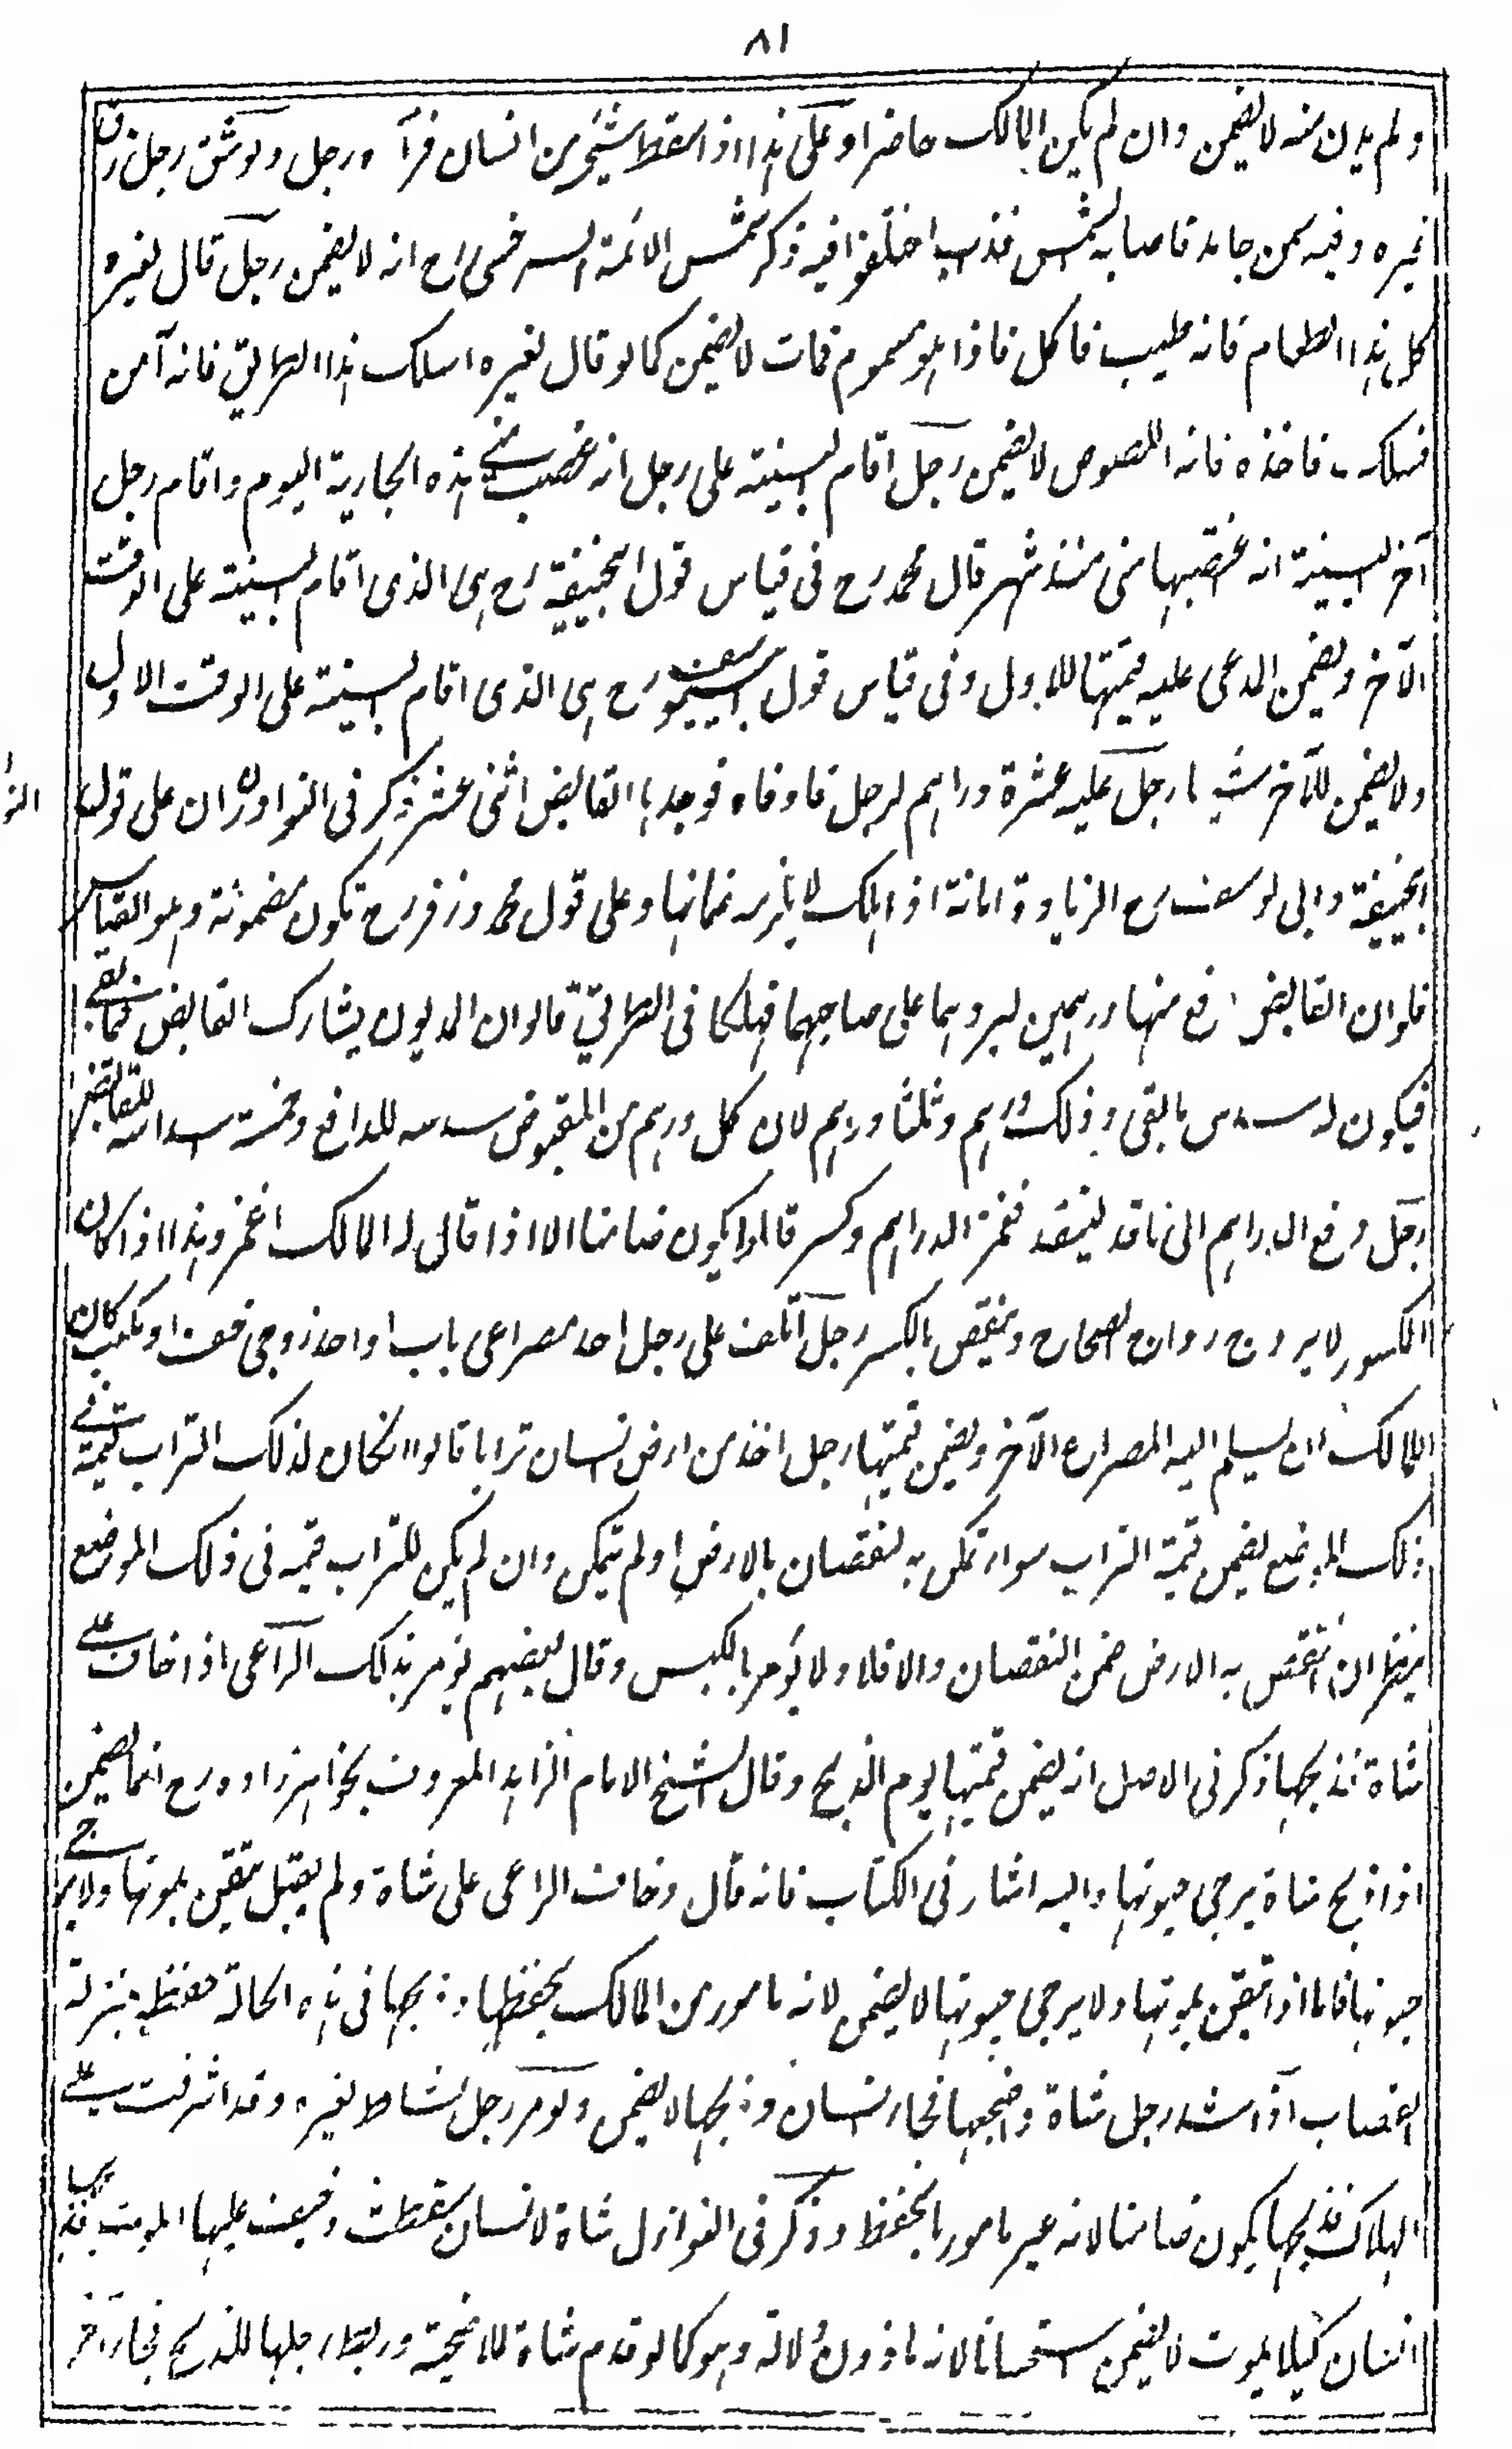 ٨١
ولم يدن منه لا يضمن وان لم يكن المالك حاضرا وعلى هذا اذا سقط شيء من انسان فرآه رجل ولو شق رجل زق
غيره وفيه سمن جامد فاصابه الشمس فذاب اختلفوا فيه ذكر شمس الائمة السرخسى رح انه لا يضمن رجل قال لغيره
كل هذا الطعام فانه طيب فاكل فاذا هو مسموم فمات لا يضمن كما لو قال لغيره اسلك هذا الطريق فانه آمن
فسلكه فاخذه اللصوص لا يضمن رجل اقام البينة على رجل انه غصب منى هذه الجارية اليوم واقام رجل
آخر البينة انه غصبها منى منذ شهر قال محمد رح فى قياس قول ابيحنيفة رح هى للذى اقام البينة على الوقت
الآخر ويضمن المدعى عليه قيمتها للاول وفى قياس قول ابييوسف رح هى للذى اقام البينة على الوقت الاول
ولا يضمن للآخر شيئا رجل عليه عشرة دراهم لرجل فاوفاه فوجدها القابض اثنى عشر ذكر فى النوادر ان على قول
ابيحنيفة وابى يوسف رح الزيادة امانة اذا هلك لا يلزمه ضمانها وعلى قول محمد وزفر رح تكون مضمونة وهو القياس
فلو ان القابض دفع منها درهمين ليردهما على صاحبهما فهلكا فى الطريق قالوا ان المديون يشارك القابض فيما بقى
فيكون له سدس ما بقى وذلك درهم وثلثا درهم لان كل درهم من المقبوض سدسه للدافع وخمسة اسداسه للقابض
رجل دفع الدراهم الى ناقد لينقد فغمز الدراهم وكسر قالوا يكون ضامنا الا اذا قال له المالك اغمز وهذا اذا كان
المكسور لا يروج رواج الصحاح وينقص بالكسر رجل اتلف على رجل احد مصراعى باب او احد زوجى خف او مكعب كان
للمالك ان يسلم اليه المصراع الآخر ويضمن قيمتها رجل اخذ من ارض انسان ترابا قالوا ان كان لذلك التراب قيمة فى
ذلك الموضع يضمن قيمة التراب سواء تمكن به النقصان بالارض او لم يتمكن وان لم يكن للتراب قيمة فى ذلك الموضع
ينظر ان انتقص به الارض ضمن النقصان والا فلا ولا يؤمر بالكبس وقال بعضهم يؤمر بذلك الراعى اذا خاف على
شاة فذبحها ذكر فى الاصل انه يضمن قيمتها يوم الذبح وقال الشيخ الامام الزاهد المعروف بخواهر زاده رح انما يضمن
اذا ذبح شاة يرجى حيوتها واليه اشار فى الكتاب فانه قال وخاف الراعى على شاة ولم يقل تيقن بموتها ولا يرجى
حيوتها فاما اذا تيقن بموتها ولا يرجى حيوتها لا يضمن لانه مامور من المالك بحفظها وذبحها فى هذه الحالة حفظ بمنزلة
القصاب اذا شد رجل شاة واضجعها فجاء انسان وذبحها لا يضمن ولو مر رجل بشاة لغيره وقد اشرفت على
الهلاك فذبحها يكون ضامنا لانه غير مامور بالحفظ وذكر فى النوازل شاة لانسان سقطت وخيف عليها الموت فذبحها
انسان كيلا يموت لا يضمن استحسانا لانه ماذون دلالة وهو كما لو قدم شاة للاضحية وربط رجلها للذبح فجاء آخر